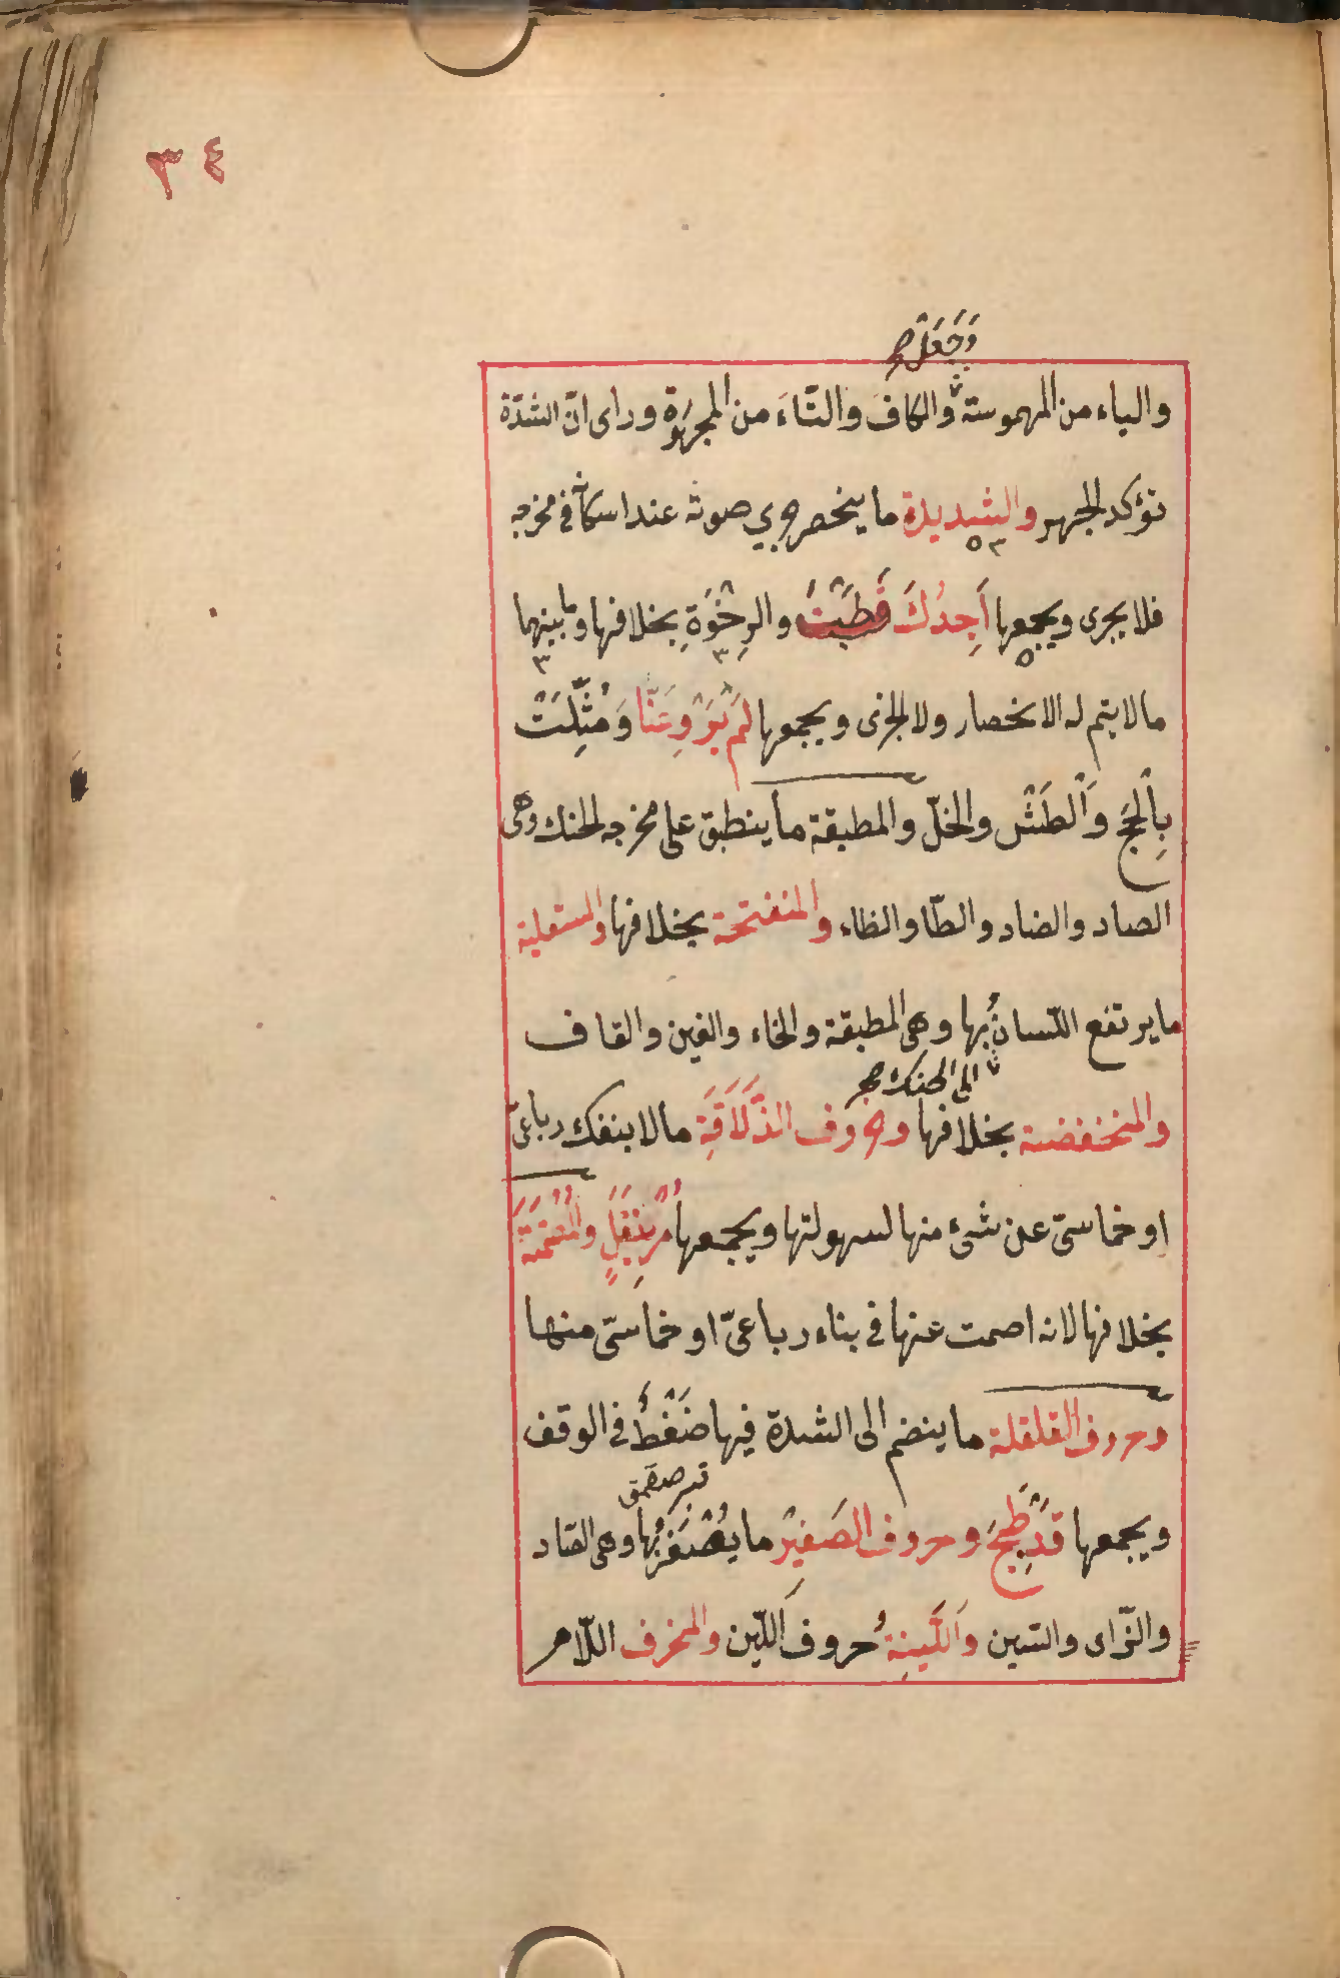 ٣٤
وَجَعَلَ صح
والياء من المهموسة والكافَ والتّاءَ من المجهورة وراى انّ الشدّة
تؤكد الجهر والشديدة ما ينحصر جرى صوته عند اسكانه فى مخرجه
فلا يجرى ويجمعها اَجِدُكَ قَطَبْتَ والرِخْوَةِ بخلافها وما بينهما
مالا يتم له الانحصار ولا الجرى ويجمعها لَمْ يَرْوِعَنَّا وَمُثِّلَتْ
بِالْحَجّ وَالْطَشْ والخلّ والمطبقة ما ينطبق على مخرجه الحنك وهى
الصاد والضاد والطّا والظاء والمنفتحة بخلافها والمستعلية
ما يرتفع اللّسانُ بها وهى المطبقة والخاء والغين والقاف
الى الحنك صح
والمنخفضة بخلافها وحروف الذَّلَاقَةِ مالا ينفك رباعىّ
او خماسىّ عن شىء منها لسهولتها ويجمعها مُرْبِنَفَلٍ والمُصْمَتَةَ
بخلافها لانه اصمت عنها فى بناء رباعىّ او خماسىّ منها
وحروف القلقلة ما ينضم الى الشدة فيها ضَغْطٌ فى الوقف
ويجمعها قَدْ طُبِجَ وحروف الصَفِيْر ما يُصْفَرُ بها وهى الصّاد
والزّاى والسّين وَاللَّيِنَةُ حروفَ اللّين والمنحرف اللّام